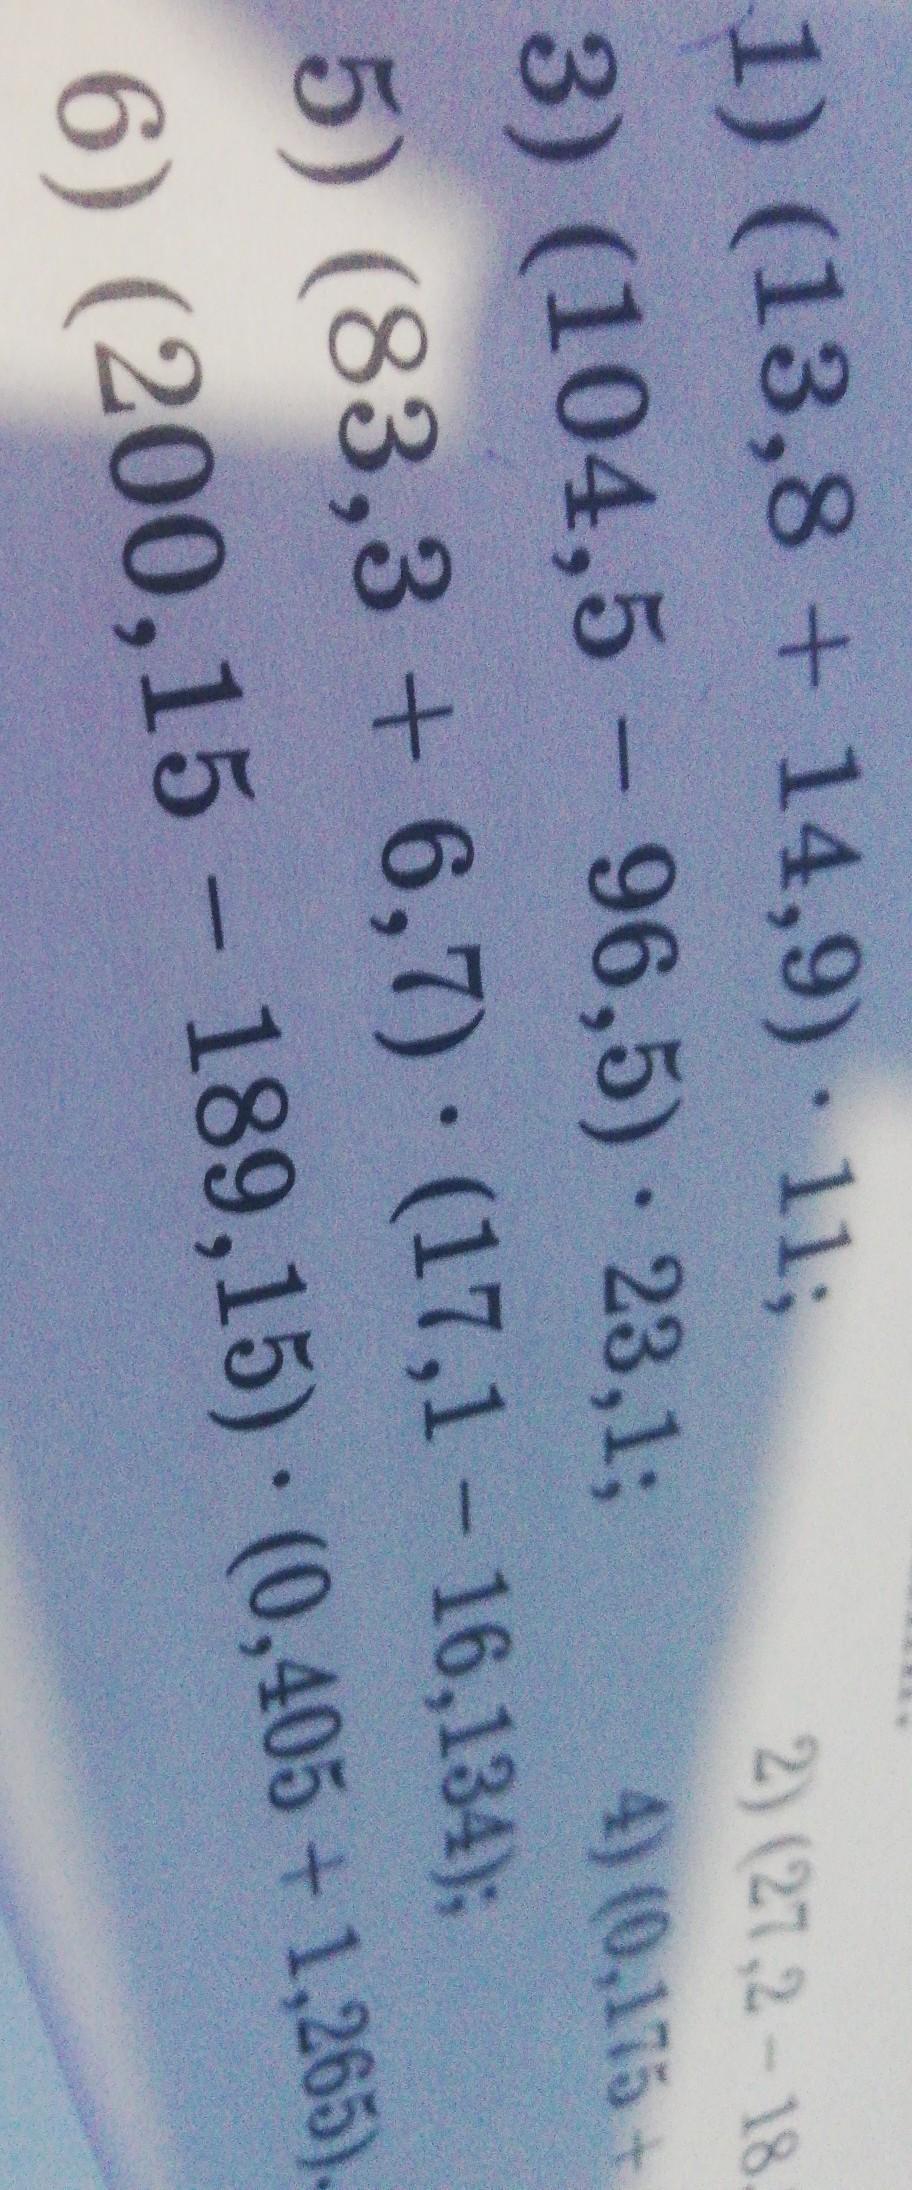 1) (13,8 + 14,9) · 11; 2) (27,2 – 18,
3) (104,5 – 96,5) · 23,1; 4) (0,175 +
5) (83,3 + 6,7) · (17,1 – 16,134);
6) (200,15 – 189,15) · (0,405 + 1,265).